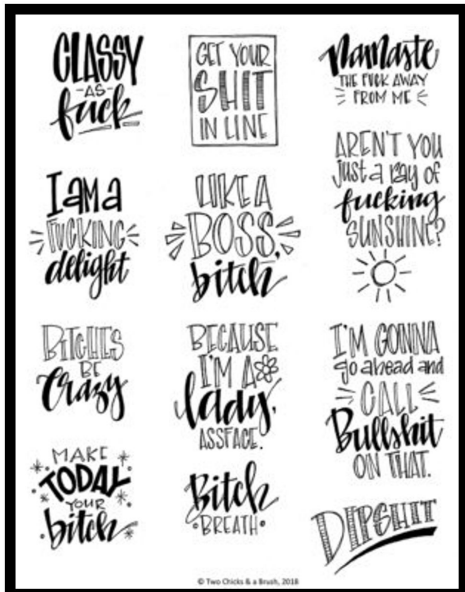 CLASSY
-AS-
fuck
GET YOUR
SHIT
IN LINE
Namaste
THE FUCK AWAY
FROM ME
I am a
FUCKING
delight
LIKE A
BOSS,
bitch
AREN'T YOU
Just a Ray of
fucking
SUNSHINE?
BITCHES
BE
Crazy
BECAUSE
I'M A
lady,
ASSFACE.
I'M GONNA
go ahead and
CALL
Bullshit
ON THAT.
MAKE
TODAY
YOUR
bitch
Bitch
BREATH
DIPSHIT
© Two Chicks & a Brush, 2018